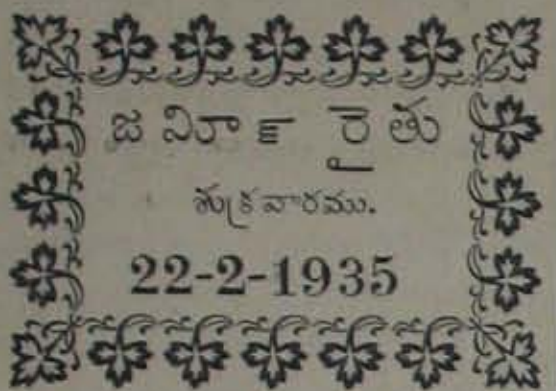 జమీ౯ రైతు
శుక్రవారము.
22-2-1935